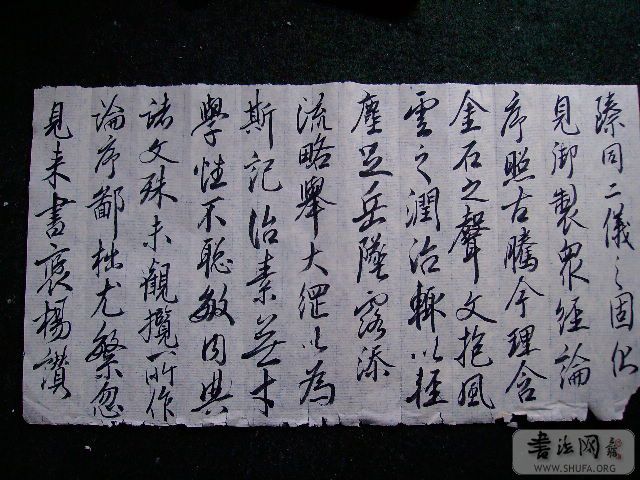 臻同二儀之固伏
見御製眾經論
序照古騰今理含
金石之聲文抱風
雲之潤治輒以輕
塵足岳墜露添
流略舉大綱以為
斯記治素無才
學性不聰敏內典
諸文殊未觀攬所作
論序鄙拙尤繁忽
見来書褒揚讚
書法网
WWW.SHUFA.ORG